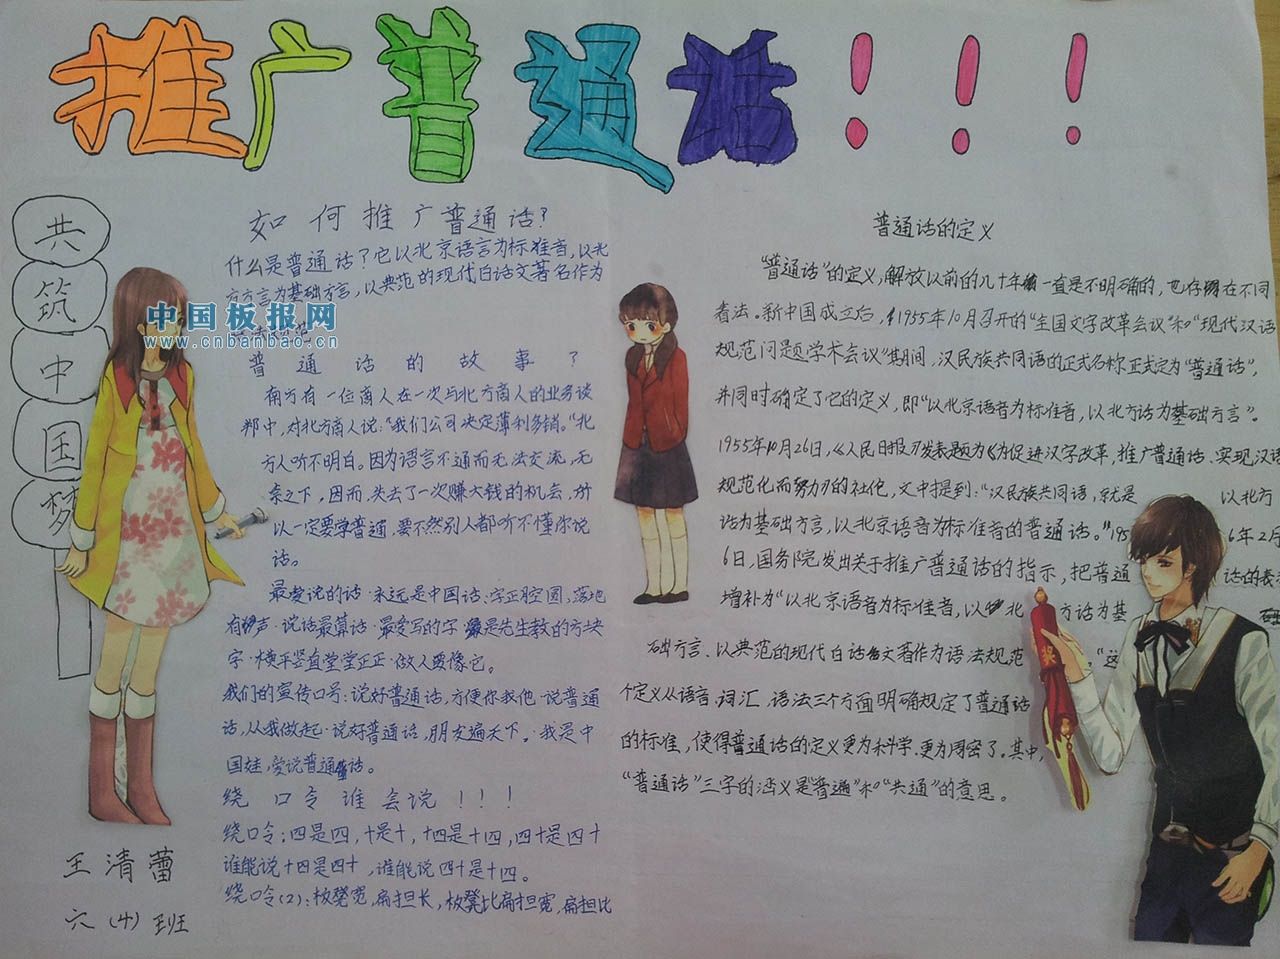 推广普通话!!!
共
筑
中
国
梦
中国板报网
www.cnbanbao.cn
如何推广普通话?
什么是普通话?它以北京语言为标准音,以北
方方言为基础方言,以典范的现代白话文著名作为
普通话的故事?
南方有一位商人在一次与北方商人的业务谈
判中,对北方商人说:“我们公司决定薄利多销。”北
方人听不明白。因为语言不通而无法交流,无
奈之下,因而,失去了一次赚大钱的机会,所
以一定要学普通,要不然别人都听不懂你说
话。
最爱说的话·永远是中国话:字正腔圆,落地
有声·说话最算话·最爱写的字·是先生教的方块
字·横平竖直堂堂正正·做人要像它。
我们的宣传口号:说好普通话,方便你我他·说普通
话,从我做起·说好普通话,朋友遍天下。我是中
国娃,爱说普通话。
绕口令谁会说!!!
绕口令:四是四,十是十,十四是十四,四十是四十
谁能说十四是四十,谁能说四十是十四。
绕口令(2):板凳宽,扁担长,板凳比扁担宽,扁担比
王清蕾
六(4)班
普通话的定义
“普通话”的定义,解放以前的几十年一直是不明确的,也存在不同
看法。新中国成立后,1955年10月召开的“全国文字改革会议”和“现代汉语
规范问题学术会议”期间,汉民族共同语的正式名称正式定为“普通话”,
并同时确定了它的定义,即“以北京语音为标准音,以北方话为基础方言”。
1955年10月26日,《人民日报》发表题为《为促进汉字改革,推广普通话、实现汉语
规范化而努力》的社论,文中提到:“汉民族共同语,就是 以北方
话为基础方言,以北京语音为标准音的普通话。”195 6年2月
6日,国务院发出关于推广普通话的指示,把普通 话的表
增补为“以北京语音为标准音,以北 方话为基
础方言、以典范的现代白话文著作为语法规范 。”这
个定义从语音、词汇、语法三个方面明确规定了普通话
的标准,使得普通话的定义更为科学、更为周密了。其中,
“普通话”三字的涵义是“普遍”和“共通”的意思。
奖